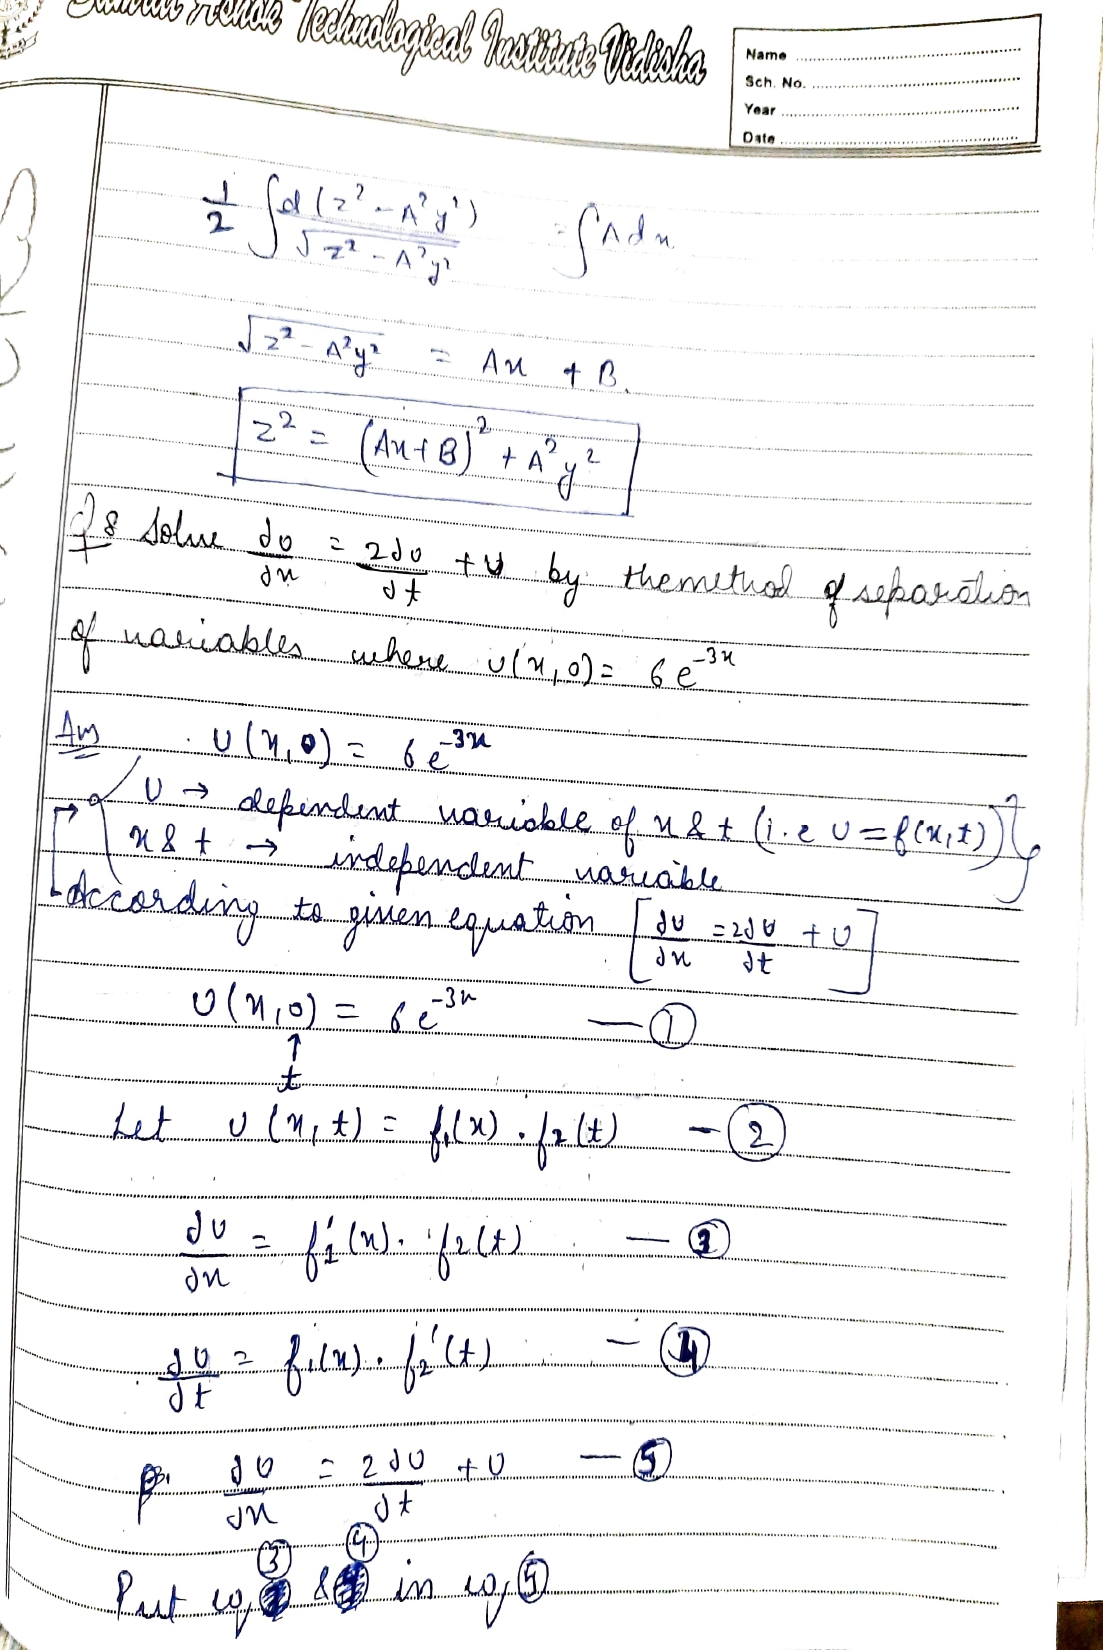 Ashok Technological Institute Vidisha
Name
Sch. No.
Year
Date
1/2 ∫ d(z² - A²y²) / √(z² - A²y²) = ∫ A dx
√(z² - A²y²) = Ax + B
z² = (Ax+B)² + A²y²
Q8 Solve ∂u/∂x = 2∂u/∂t + u by the method of separation
of variables where u(x,0) = 6e^(-3x)
Ans u(x,0) = 6e^(-3x)
u → dependent variable of x & t (i.e u = f(x,t))
x & t → independent variable
According to given equation [∂u/∂x = 2∂u/∂t + u]
u(x,0) = 6e^(-3x) — ①
↑
t
Let u(x,t) = f₁(x) . f₂(t) — ②
∂u/∂x = f₁'(x) . f₂(t) — ③
∂u/∂t = f₁(x) . f₂'(t) — ④
∂u/∂x = 2∂u/∂t + u — ⑤
③ ④
Put eq, & in eq, ⑤